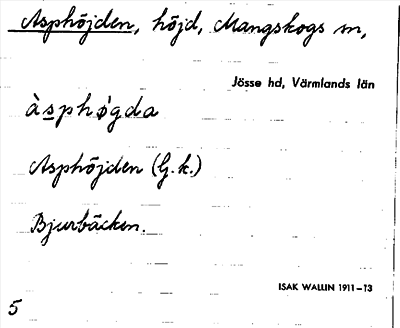 Asphöjden, höjd, Mangskogs sn,
Jösse hd, Värmlands län
àsphø̀gda
Asphöjden (G.k.)
Bjurbäcken.
ISAK WALLIN 1911–13
5